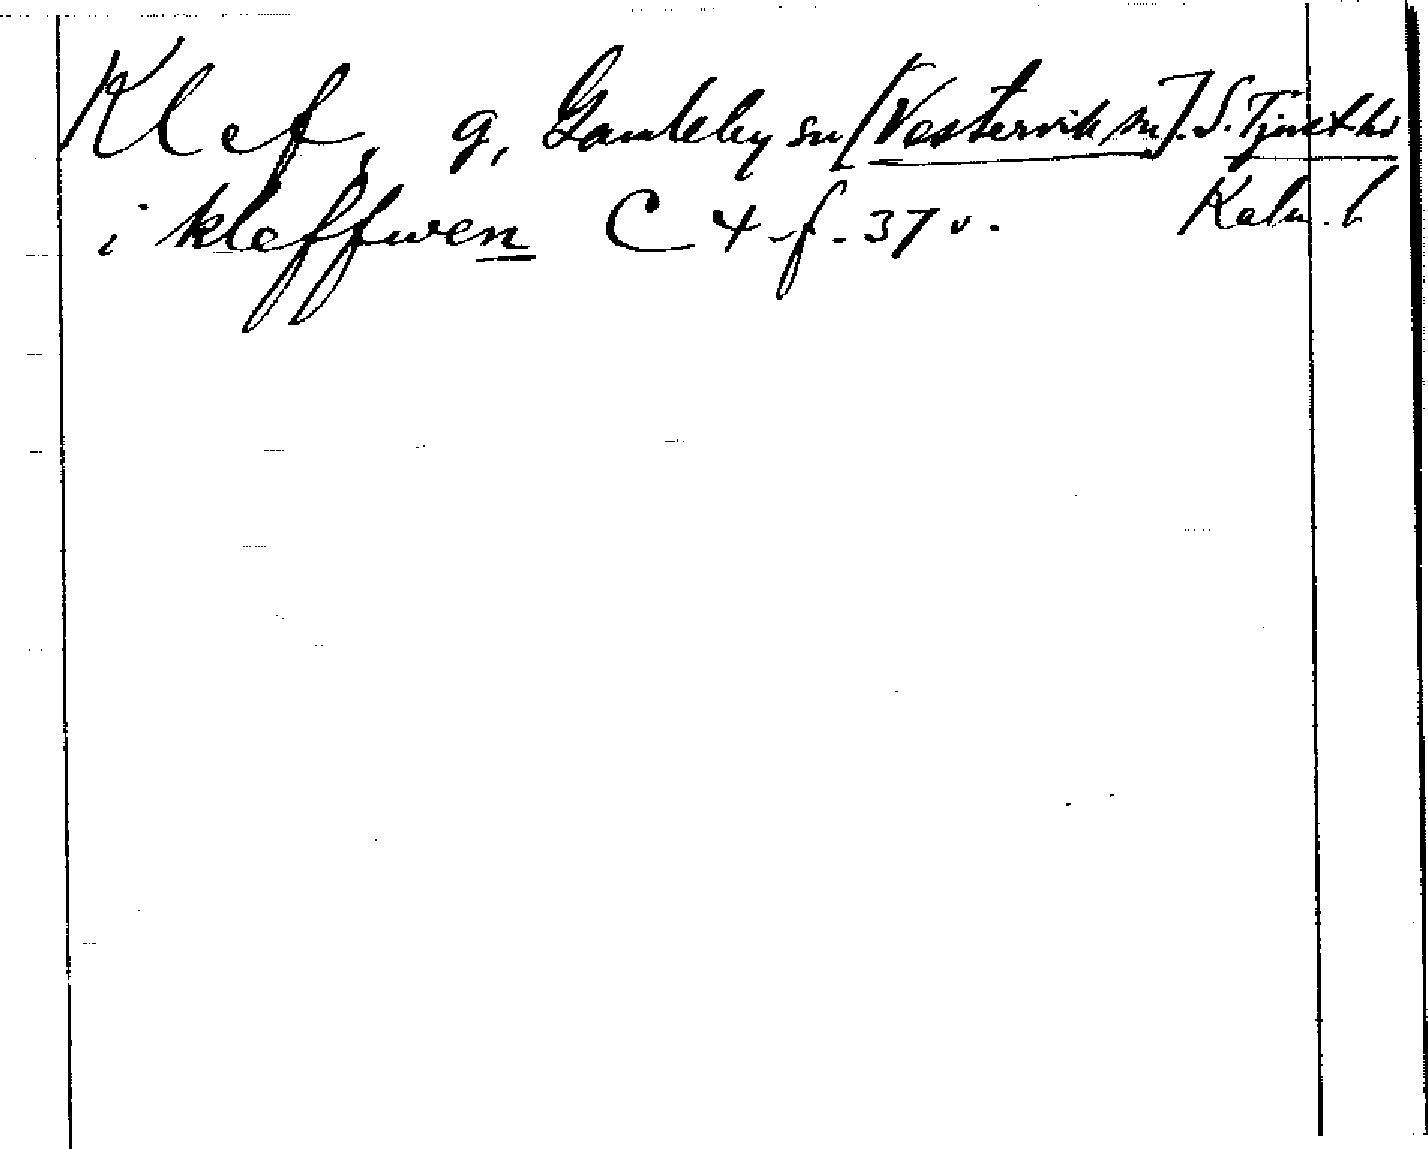 Klef, g, Gamleby sn [Vestervik sn]. S. Tjust hd
i kleffwen C 4 f. 37 v. Kalm. l